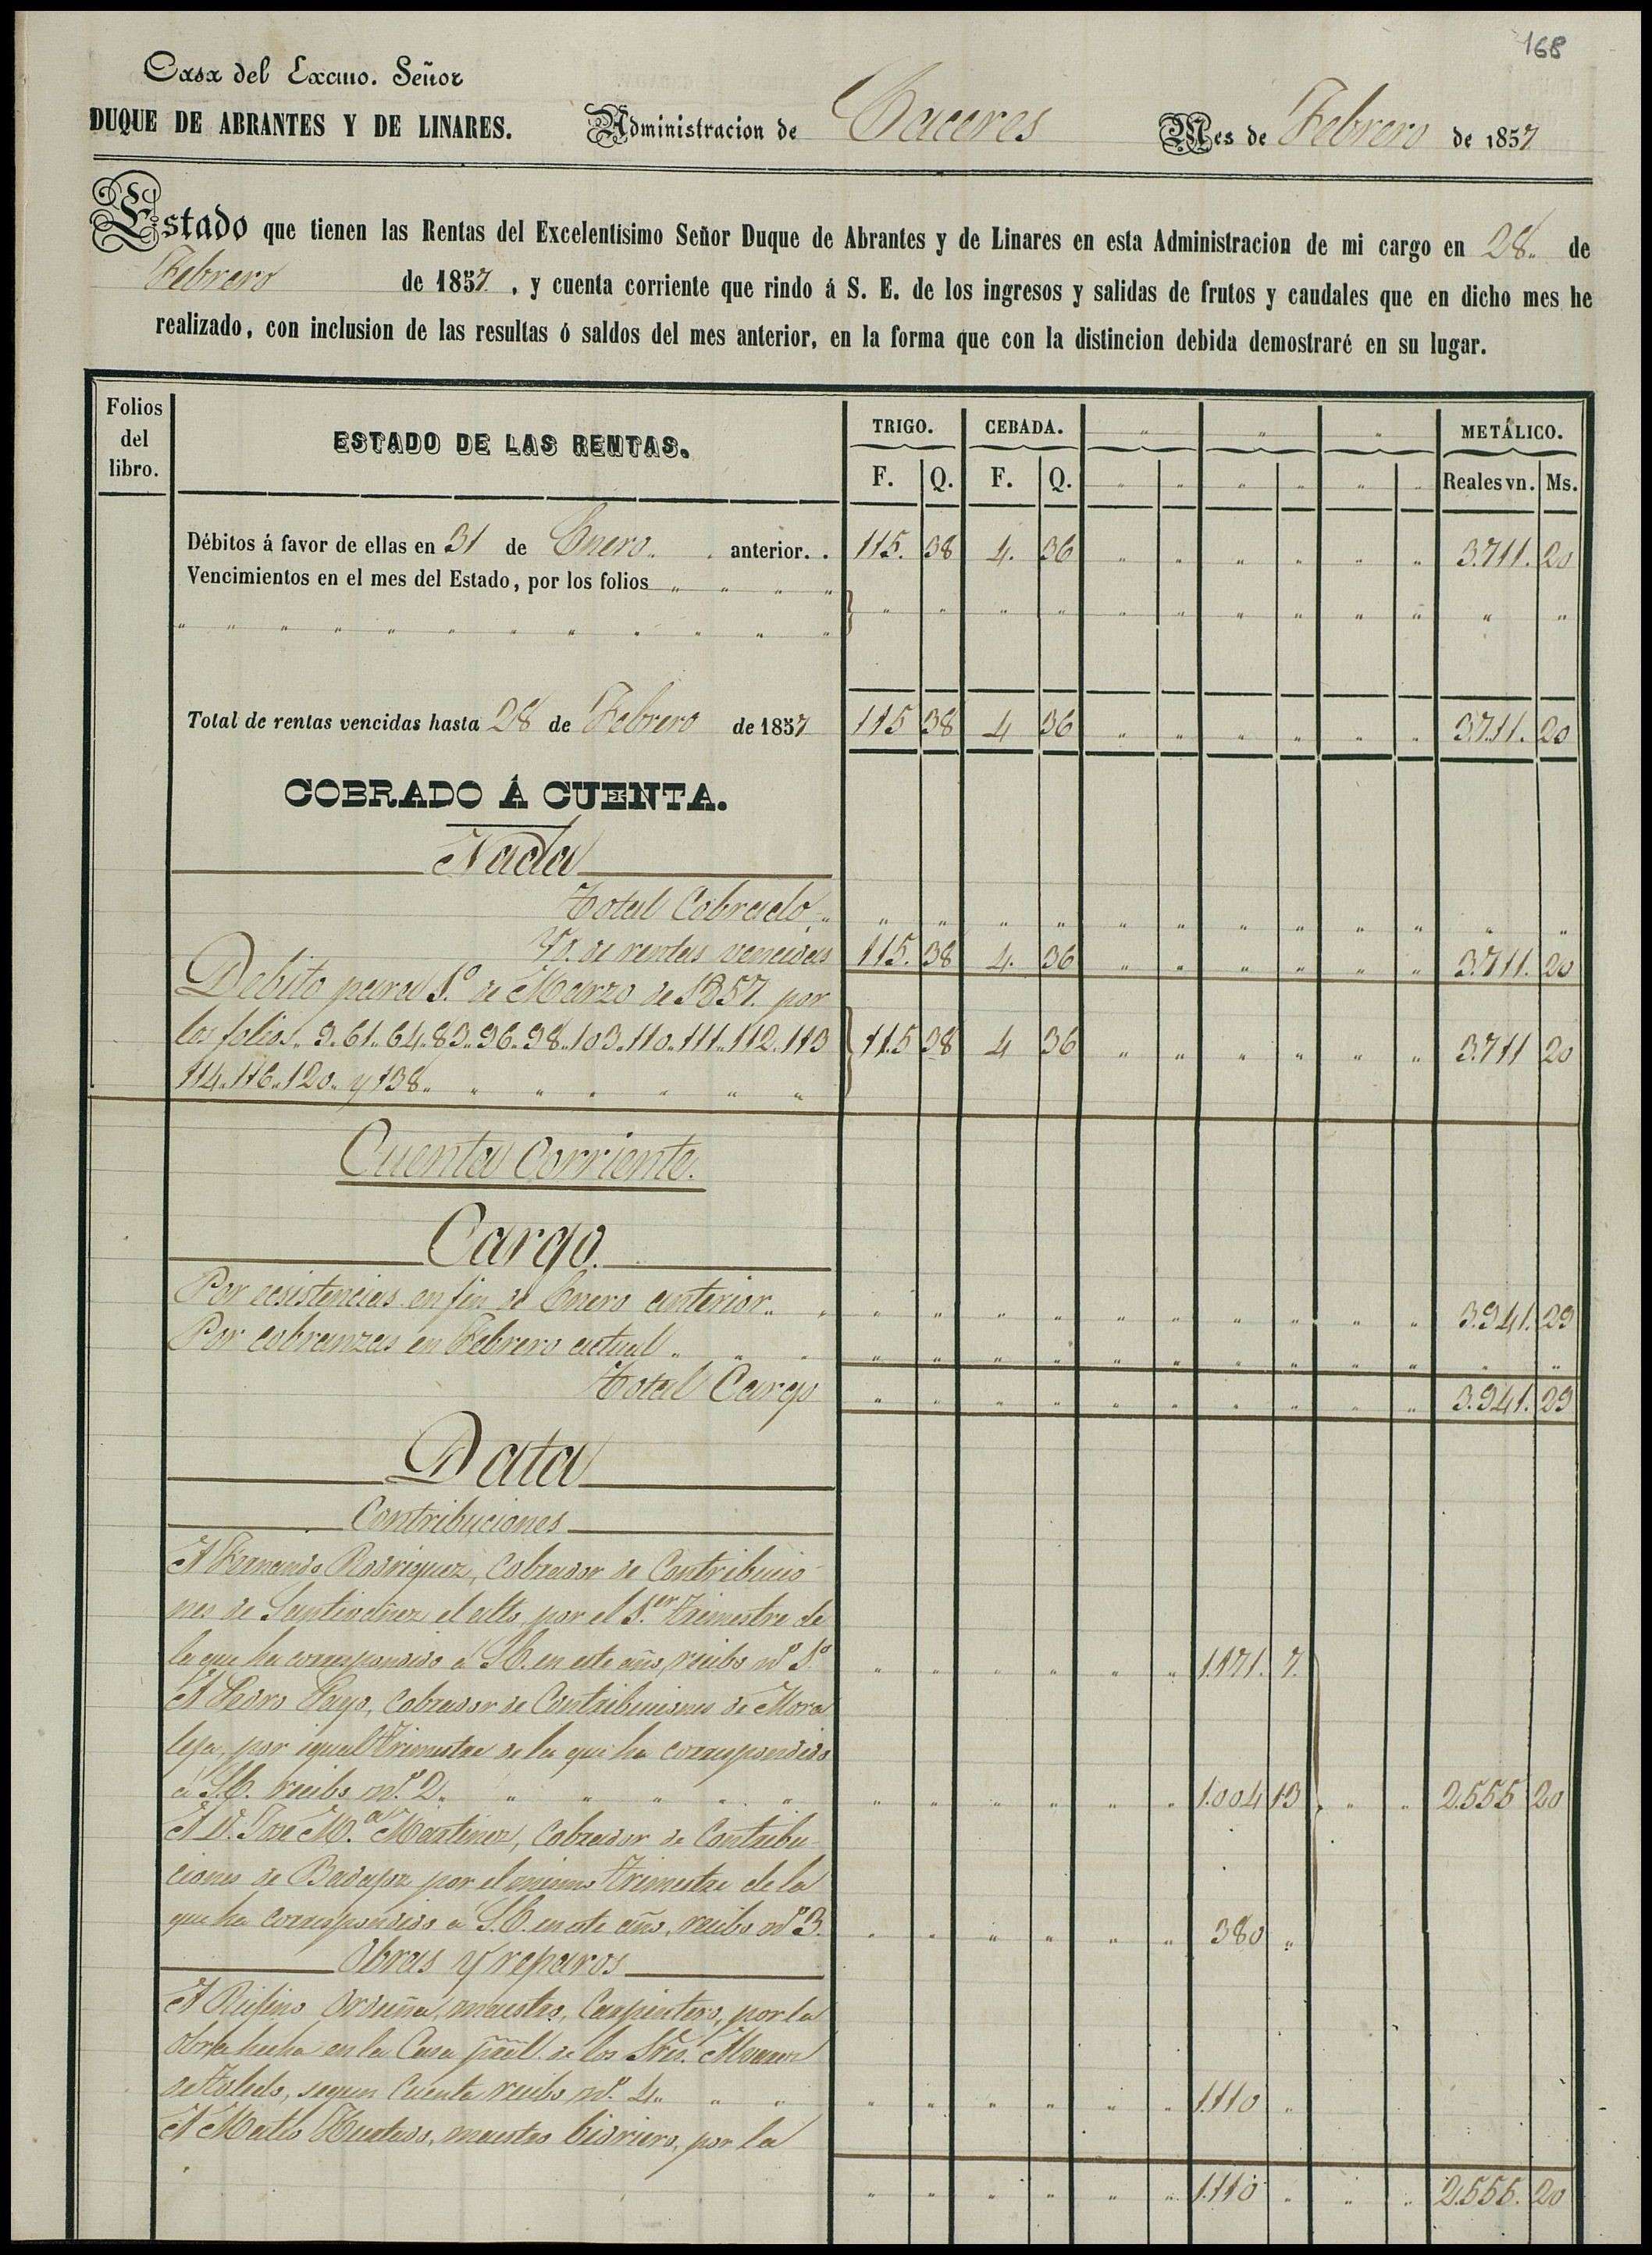 168
Casa del Excmo. Señor
DUQUE DE ABRANTES Y DE LINARES. Administracion de Caceres Mes de Febrero de 1857
Estado que tienen las Rentas del Excelentísimo Señor Duque de Abrantes y de Linares en esta Administracion de mi cargo en 28. de
Febrero de 1857. , y cuenta corriente que rindo á S. E. de los ingresos y salidas de frutos y caudales que en dicho mes he
realizado, con inclusion de las resultas ó saldos del mes anterior, en la forma que con la distincion debida demostraré en su lugar.
Folios del libro. ESTADO DE LAS RENTAS. TRIGO. CEBADA. " " " METÁLICO.
F. Q. F. Q. " " " " " " Reales vn. Ms.
Débitos á favor de ellas en 31 de Enero. . anterior. . 115. 38 4. 36 " " " " " " 3.711. 20
Vencimientos en el mes del Estado, por los folios " " " "
" " " " " " " " " " " " " " " " " " " " " " " "
Total de rentas vencidas hasta 28 de Febrero de 1857 115 38 4 36 " " " " " " 3.711. 20
COBRADO Á CUENTA.
Nada
Total Cobrado " " " " " " " " " " " " "
Yd. de rentas vencidas 115. 38 4. 36 " " " " " " 3.711. 20
Debito para 1.º de Marzo de 1857. por
los folios. 9. 61. 64. 83. 96. 98. 103. 110. 111. 112. 113 115 38 4 36 " " " " " " 3.711 20
114. 116. 120. y 138. " " " " " "
Cuenta Corriente.
Cargo.
Por ecsistencias en fin de Enero anterior. " " " " " " " " " " " 3.941. 29
Por cobranzas en Febrero actual. " " " " " " " " " " " " " "
Total Cargo " " " " " " " " " " 3.941. 29
Data
Contribuciones
A Fernando Rodriguez, Cobrador de Contribucio
nes de Santivañez el alto, por el 1.er trimestre de
la que ha correspondido á S.E. en este año, recibo nº 1º " " " " " " 1.171. 7.
A Pedro Payo, Cobrador de Contribuciones de Mora
leja, por igual trimestre de la que ha correspondido
á S.E. recibo nº 2. " " " " " " " " " " " 1.004 13 " " 2.555 20
A D. Jose M.ª Martinez, Cobrador de Contribu-
ciones de Badajoz por el mismo trimestre de la
que ha correspondido á S.E. en este año, recibo nº 3. " " " " " " 380 "
Obras y reparos
A Rufino Orduña, maestro, Carpintero, por la
obra hecha en la Casa ppãl. de los Sres.
de Toledo, segun Cuenta recibo nº 4. " " " " " " " " 1.110 "
A Matto Hurtado, maestro bidriero, por la
" " " " " " 1.110 " " " 2.555. 20